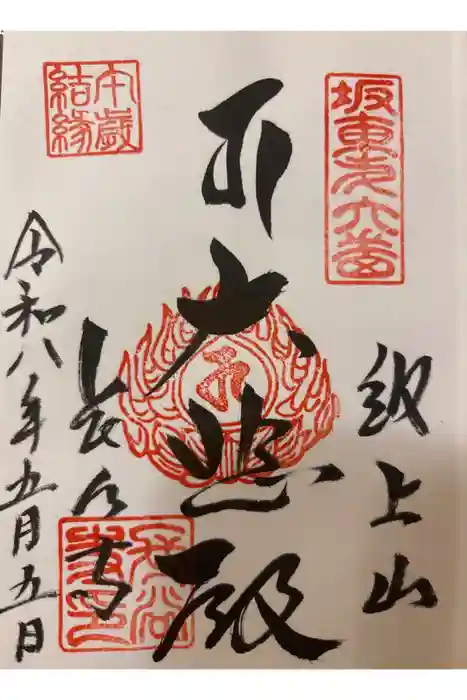 坂東第六番
飯上山
大悲殿
長谷寺
午歳
結縁
令和八年五月五日